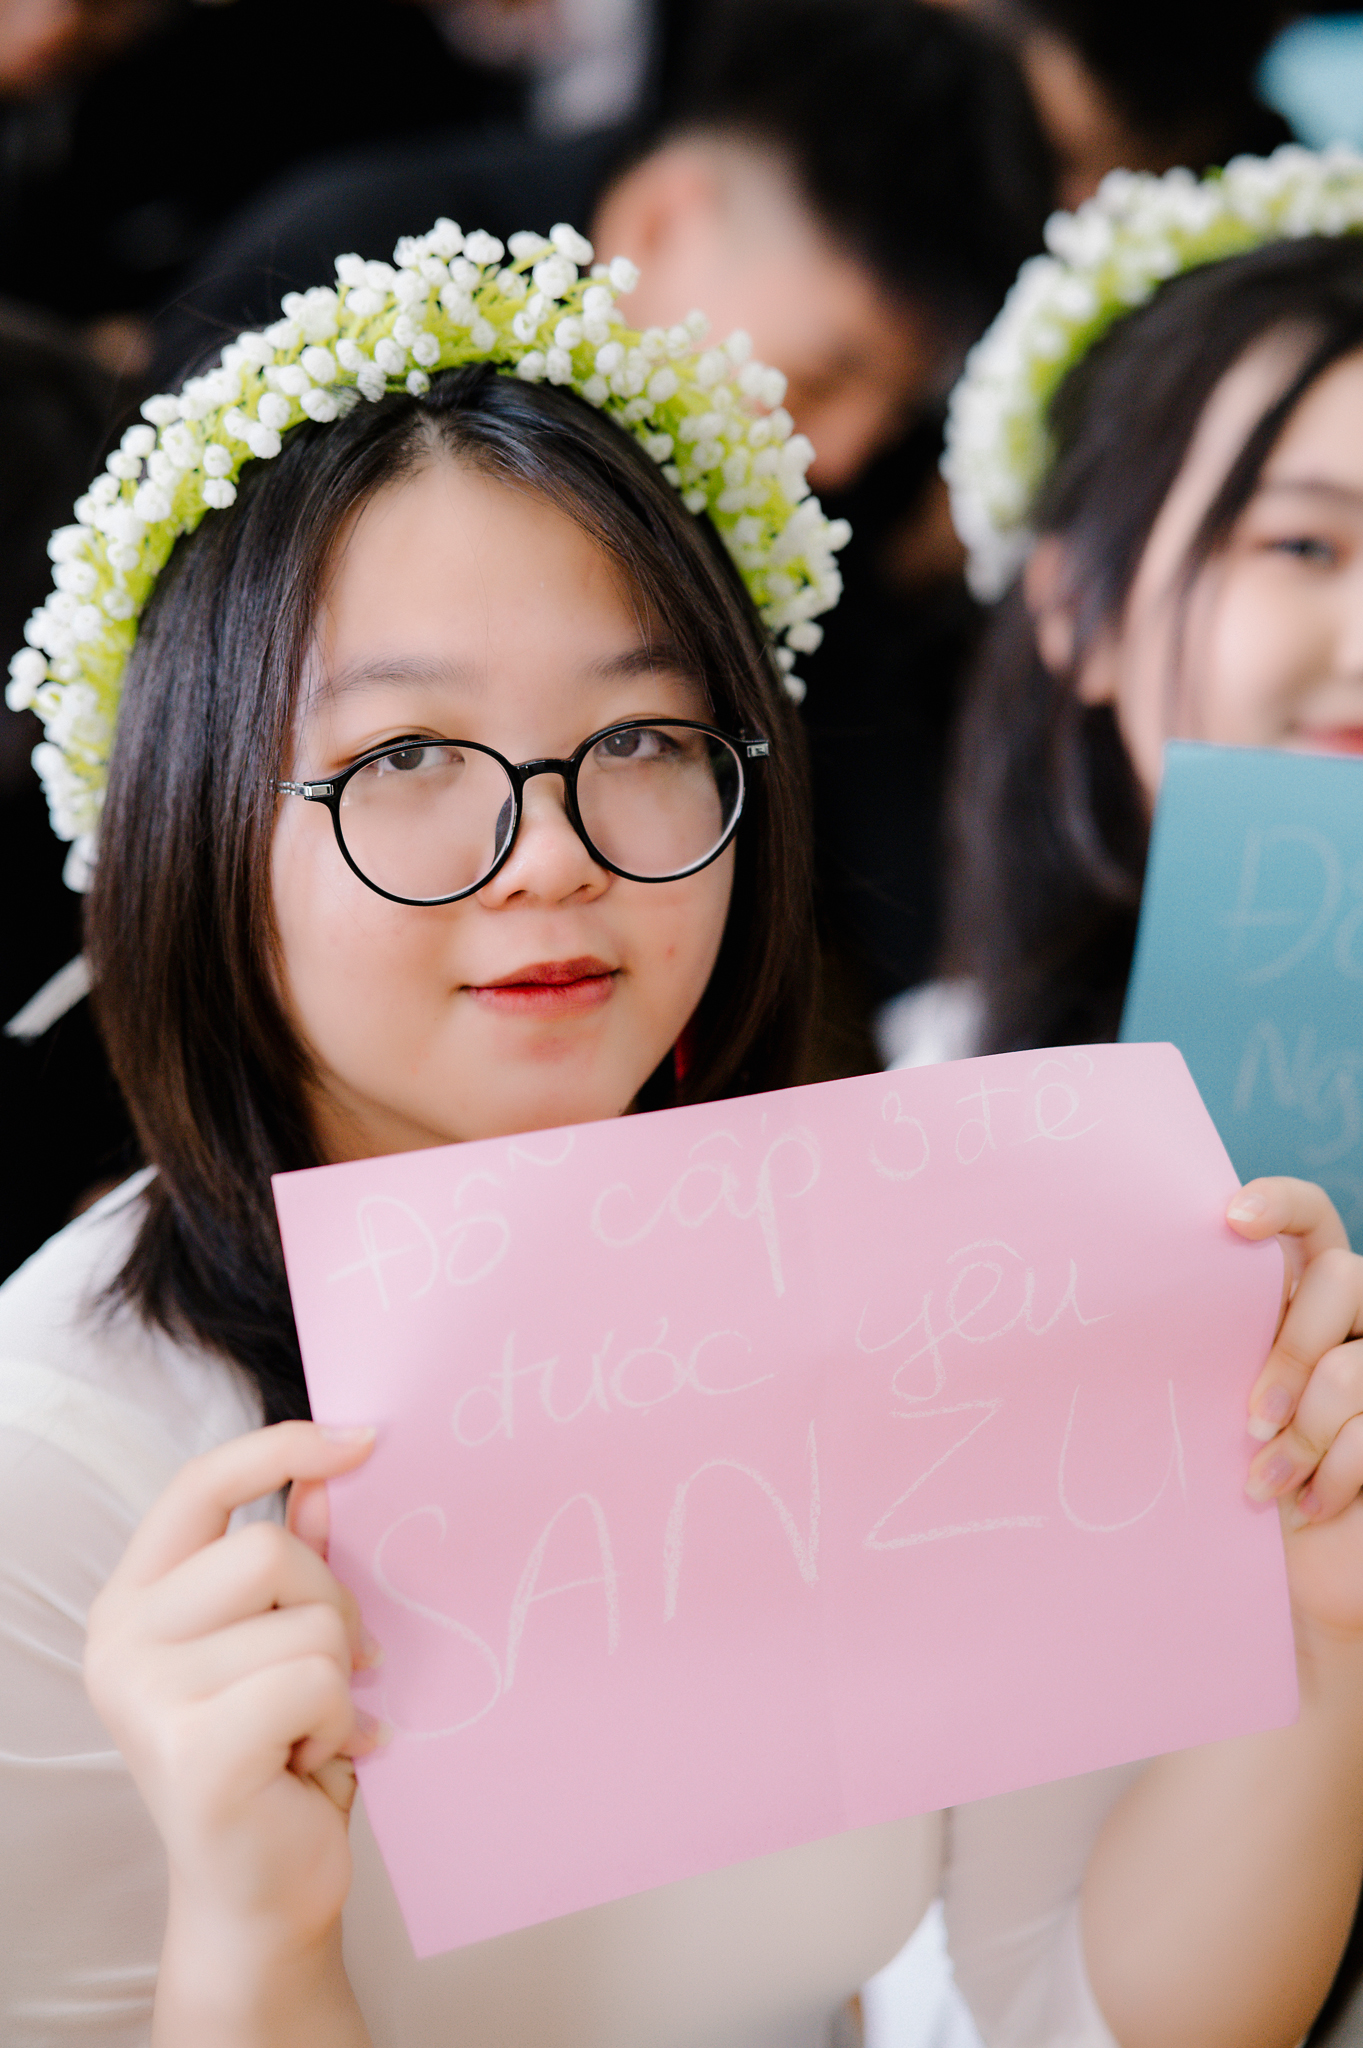 Đỗ cấp 3 để
được yêu
SANZU
Ng